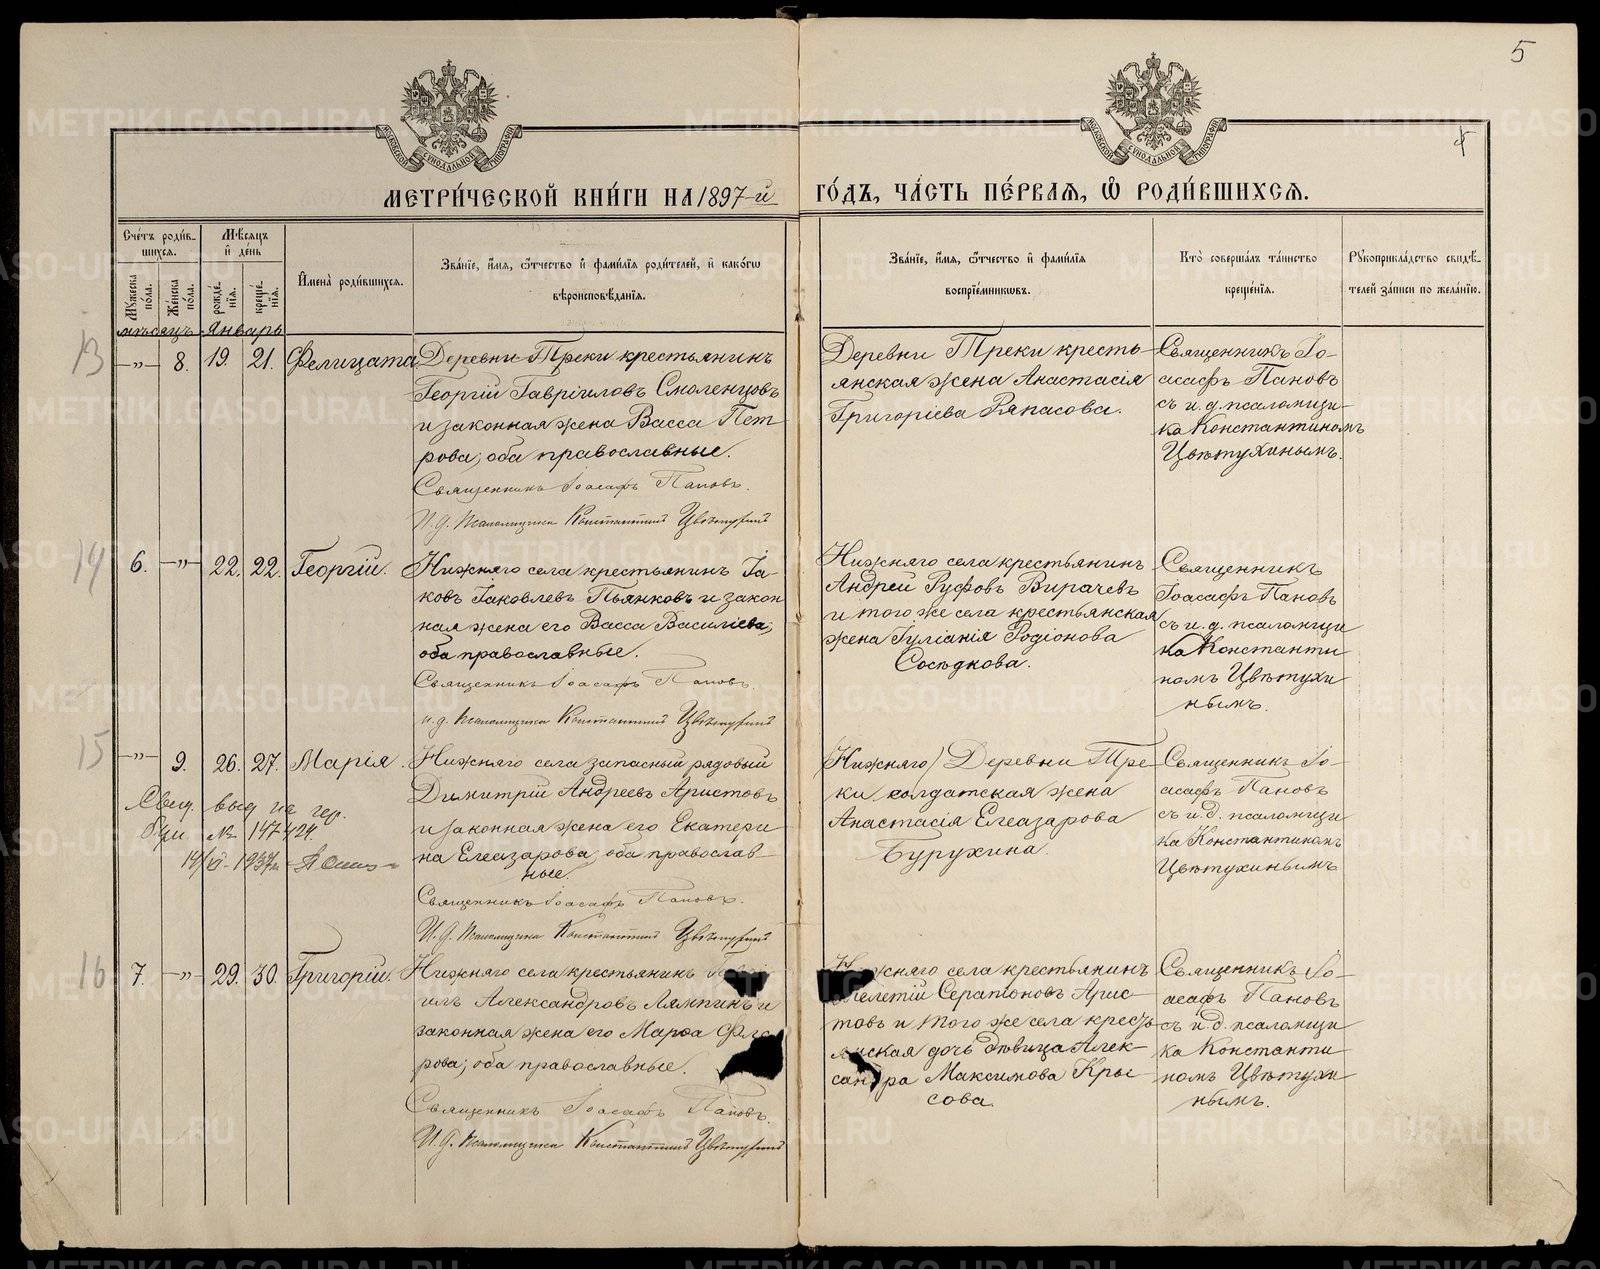 5
МЕТРИ́ЧЕСКОЙ КНИ́ГИ НА 1897-й ГО́ДЪ, ЧА́СТЬ ПЕ́РВАЯ, Ѡ҆ РОДИ́ВШИХСЯ.
Счетъ роди́в-
шихся.
Му́жеска по́ла.
Же́нска по́ла.
Мѣ́сяцъ и҆ де́нь
рожде́нїя.
креще́нїя.
И҆мена̀ роди́вшихся.
Зва́нїе, и҆́мя, ѻ҆́тчество и҆ фами́лїя роди́телей, и҆ како́гѡ
вѣроисповѣ́данїя.
Зва́нїе, и҆́мя, ѻ҆́тчество и҆ фами́лїя
воспрїе́мниковъ.
Кто̀ соверша́лъ та́инство
креще́нїя.
Рꙋкоприкла́дство свидѣ́-
телей за́писи по жела́нїю.
мѣсяцъ Январь
13
—„— 8. 19. 21. Фелицата
Деревни Треки крестьянинъ
Георгій Гавріиловъ Смоленцовъ
и законная жена Васса Пет
рова; оба православные.
Священникъ Іоасафъ Пановъ.
И. д. Псаломщика Константинъ Цвѣтухинъ
Деревни Треки кресть-
янская жена Анастасія
Григоріева Ряпасова.
Священникъ Іо-
асафъ Пановъ
съ и. д. псаломщи-
ка Константиномъ
Цвѣтухинымъ.
14
6. —„— 22. 22. Георгій.
Нижняго села крестьянинъ Іа-
ковъ Іаковлевъ Пьянковъ и закон
ная жена его Васса Василіева;
оба православные.
Священникъ Іоасафъ Пановъ.
и. д. Псаломщика Константинъ Цвѣтухинъ
Нижняго села крестьянинъ
Андрей Руфовъ Вирачевъ
и того же села крестьянская
жена Іуліанія Родіонова
Сосѣдкова.
Священникъ
Іоасафъ Пановъ
съ и. д. псаломщи
ка Константи
номъ Цвѣтухи
нымъ.
15
—„— 9. 26. 27. Марія.
Свид. выд на гер.
№ 147424
Нижняго села запасный рядовый
Димитрій Андреевъ Аристовъ
и законная жена его Екатери
на Елеазарова; оба православ-
ные.
Священникъ Іоасафъ Пановъ.
И. д. Псаломщика Константинъ Цвѣтухинъ
(Нижняго) Деревни Тре-
ки солдатская жена
Анастасія Елеазарова
Бурухина
Священникъ Іо-
асафъ Пановъ
съ и. д. псаломщи
ка Константиномъ
Цвѣтухинымъ
16
7. —„— 29. 30. Григорій.
Нижняго села крестьянинъ
илъ Александровъ Ляпинъ и
законная жена его Марѳа
рова; оба православные.
Священникъ Іоасафъ Пановъ.
И. д. Псаломщика Константинъ Цвѣтухинъ
Нижняго села крестьянинъ
Мелетій Серапіоновъ Арис-
товъ и того же села кресть
янская дочь дѣвица Алек-
сандра Максимова Кры-
сова
Священникъ Іо-
асафъ Пановъ
съ и. д. псаломщи
ка Константи
номъ Цвѣтухи
нымъ.
METRIKI.GASO-URAL.RU